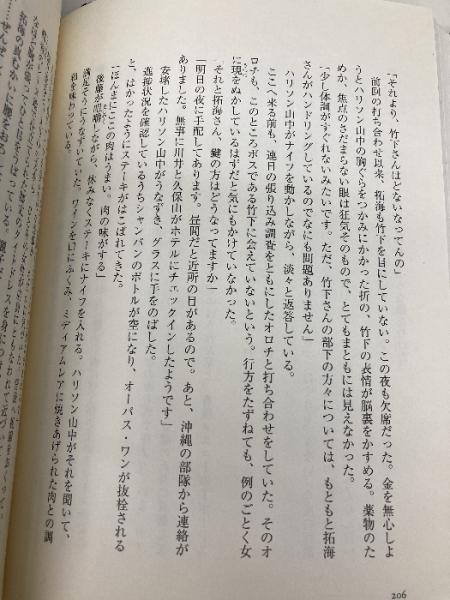 「それより、竹下さんはどないなってんの」
前回の打ち合わせ以来、拓海も竹下を目にしていない。この夜も欠席だった。金を無心しよ
うとハリソン山中の胸ぐらをつかみにかかった折の、竹下の表情が脳裏をかすめる。薬物のた
めか、焦点のさだまらない眼は狂気そのもので、とてもまともには見えなかった。
「少し体調がすぐれないみたいです。ただ、竹下さんの部下の方々については、もともと拓海
さんがハンドリングしているのでなにも問題ありません」
ハリソン山中がナイフを動かしながら、淡々と返答している。
ここへ来る前も、連日の張り込み調査をともにしたオロチと打ち合わせをしていた。そのオ
ロチも、このところボスである竹下に会えていないという。行方をたずねても、例のごとく女
に現をぬかしているはずだと気にもかけていなかった。
「それと拓海さん、鍵の方はどうなってますか」
「明日の夜に手配してあります。昼間だと近所の目があるので。あと、沖縄の部隊から連絡が
ありました。無事に川井と久保山がホテルにチェックインしたようです」
安堵したハリソン山中がうなずき、グラスに手をのばした。
進捗状況を確認しているうちシャンパンのボトルが空になり、オーパス・ワンが抜栓される
と、はかったようにステーキがはこばれてきた。
「ほんまにここの肉はうまい。肉の味がする」
後藤が咀嚼しながら、休みなくステーキにナイフを入れる。ハリソン山中がそれを聞いて、
満足そうにうなずいていた。ワインを口にふくみ、ミディアムレアに焼きあげられた肉との調
和を味わっている。
206